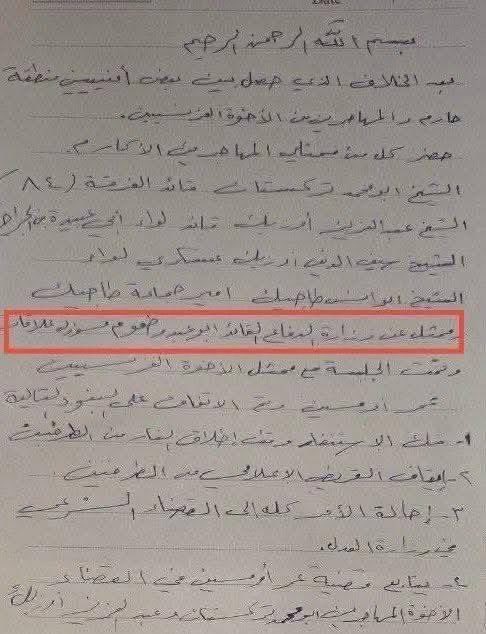 Date
بسم الله الرحمن الرحيم
بعد الخلاف الذي حصل بين بعض أمنيين منطقة
حارم والمهاجرين من الأخوة الفرنسيين.
حضر كل من ممثلي المهاجرين الأكارم.
الشيخ ابو محمد تركستان قائد الفرقة (٨٤)
الشيخ عبد العزيز أوزبك قائد لواء أبي عبيدة بن الجراح
الشيخ سيف الدين اوزبك عسكري لواء
الشيخ ابو انس طاجيك امير جماعة طاجيك
وممثل عن وزارة الدفاع القائد ابو عبدو طعوم مسؤول علاقات
وتمت الجلسة مع ممثل الأخوة الفرنسيين
عمر اومسين وتم الاتفاق على البنود التالية
١- فك الاستنفار ووقف إطلاق النار من الطرفين
٢- إيقاف التحريض الاعلامي من الطرفين.
٣- إحالة الأمر كله إلى القضاء الشرعي
في وزارة العدل.
٤- يتابع قضية عمر أومسين في القضاء
الأخوة المهاجرين ابو محمد تركستان وعبد العزيز أوزبك